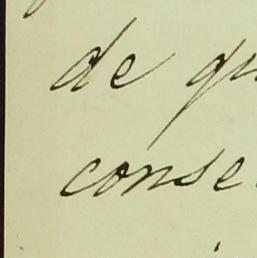 de qu
conse